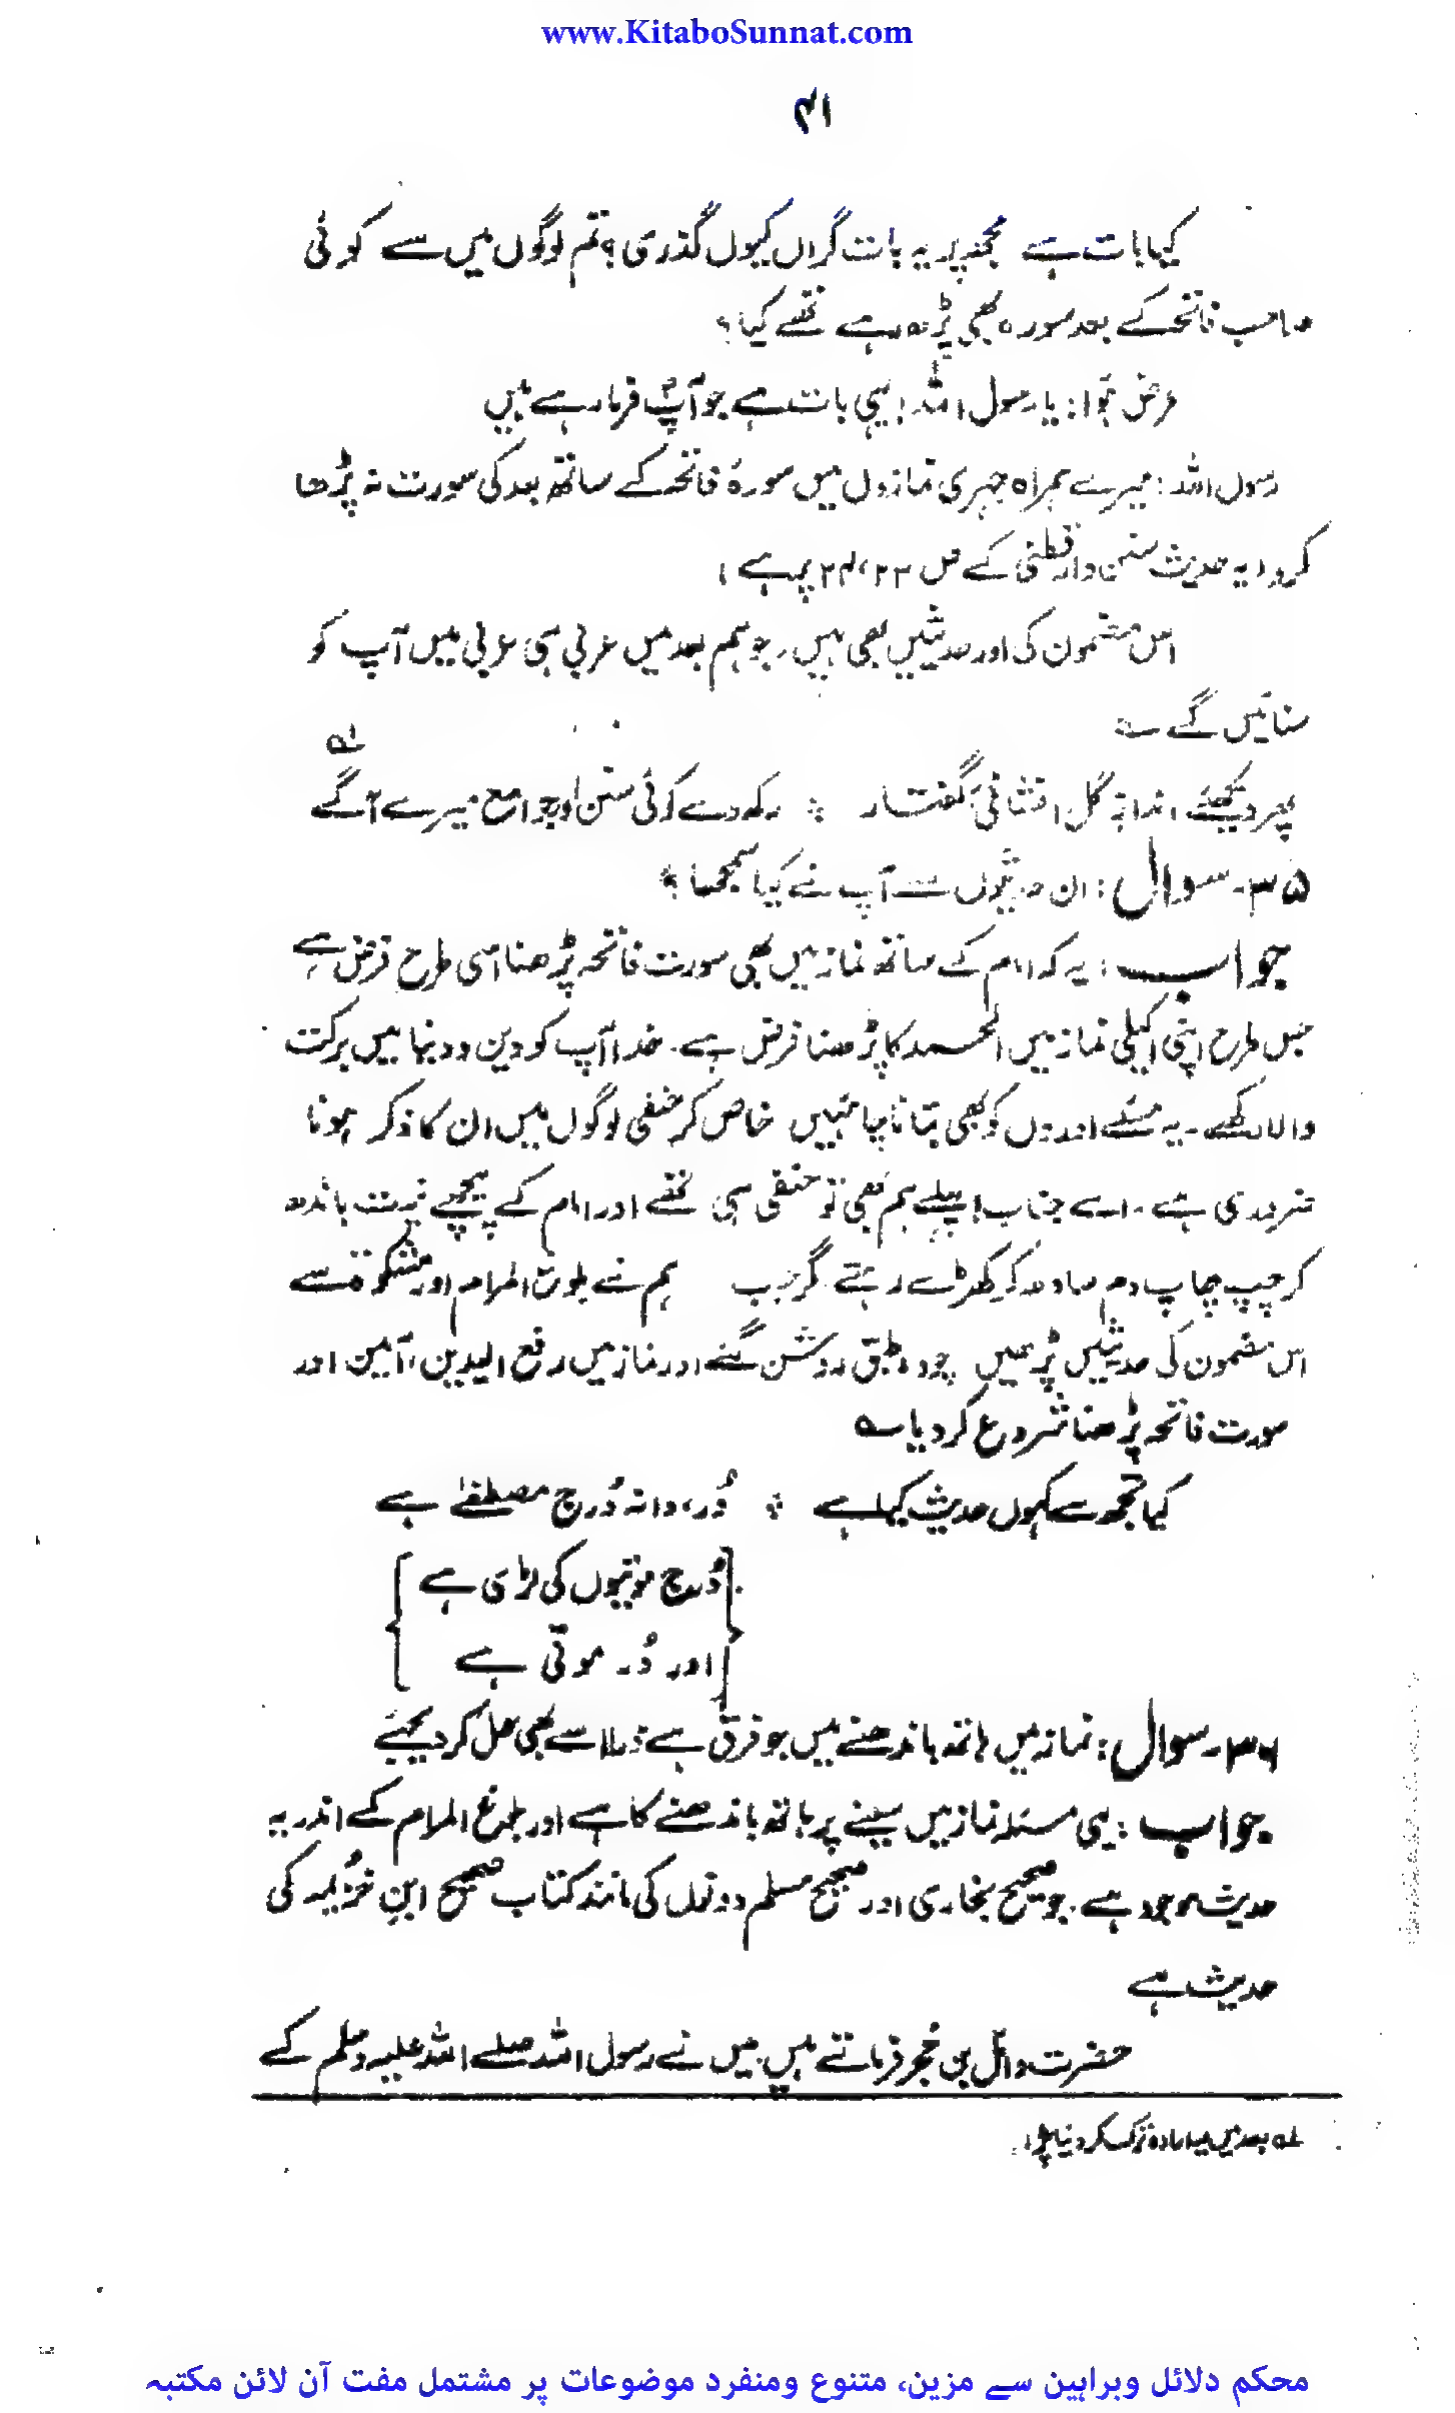 www.KitaboSunnat.com
۴۱
کیا بات ہے مجھ پر یہ بات گراں کیوں گذری؟ تم لوگوں میں سے کوئی
صاحب فاتحہ کے بعد سورہ بھی پڑھ رہے تھے کیا؟
عرض ہوا: یا رسول اللہ! یہی بات ہے جو آپؐ فرما رہے ہیں
رسول اللہ: میرے ہمراہ جہری نمازوں میں سورۂ فاتحہ کے ساتھ بعد کی سورت نہ پڑھا
کرو (یہ حدیث سنن دارقطنی کے ص ۲۳، ۲۴ پر ہے)
اس مضمون کی اور حدیثیں بھی ہیں، جو ہم بعد میں عربی ہی عربی میں آپ کو
سنائیں گے ؎
پھر دیکھئے اندازِ گل افشانیٔ گفتار ؞ رکھ دے کوئی سنن اور جوامع میرے آگے
۳۵۔ سوال: ان حدیثوں سے آپ نے کیا سمجھا؟
جواب: یہ کہ امام کے ساتھ نماز میں بھی سورت فاتحہ پڑھنا اسی طرح فرض ہے
جس طرح اپنی اکیلی نماز میں الحمد کا پڑھنا فرض ہے۔ خدا آپ کو دین و دنیا میں برکت
والا رکھے۔ یہ مسئلے اوروں کو بھی بتانا چاہئیں خاص کر حنفی لوگوں میں ان کا ذکر ہونا
ضروری ہے۔ اے جناب! پہلے ہم بھی تو حنفی ہی تھے اور امام کے پیچھے نیت باندھ
کر چپ چاپ دم سادھ کر کھڑے رہتے۔ مگر جب ہم نے بلوغ المرام اور مشکوٰۃ سے
اس مضمون کی حدیثیں پڑھیں چودہ طبق روشن ہو گئے اور نماز میں رفع الیدین، آمین اور
سورت فاتحہ پڑھنا شروع کر دیا ؎
کیا تجھ سے کہوں حدیث کیا ہے ؞ دُر، دانہ دُرج مصطفےٰ ہے
{دُرج موتیوں کی لڑی ہے
اور دُر۔ موتی ہے}
۳۶۔ سوال: نماز میں ہاتھ باندھنے میں جو فرق ہے ذرا اسے بھی حل کر دیجئے
جواب: یہی مسئلہ نماز میں سینے پر ہاتھ باندھنے کا ہے اور بلوغ المرام کے اندر یہ
حدیث موجود ہے۔ جو صحیح بخاری اور صحیح مسلم دونوں کی مانند کتاب صحیح ابنِ خزیمہ کی
حدیث ہے
حضرت وائل بن حُجر فرماتے ہیں۔ میں نے رسول اللہ صلے اللہ علیہ وسلم کے
لہ بعد میں یہ ارادہ ترک کر دینا پڑا۔
محکم دلائل وبراہین سے مزین، متنوع ومنفرد موضوعات پر مشتمل مفت آن لائن مکتبہ